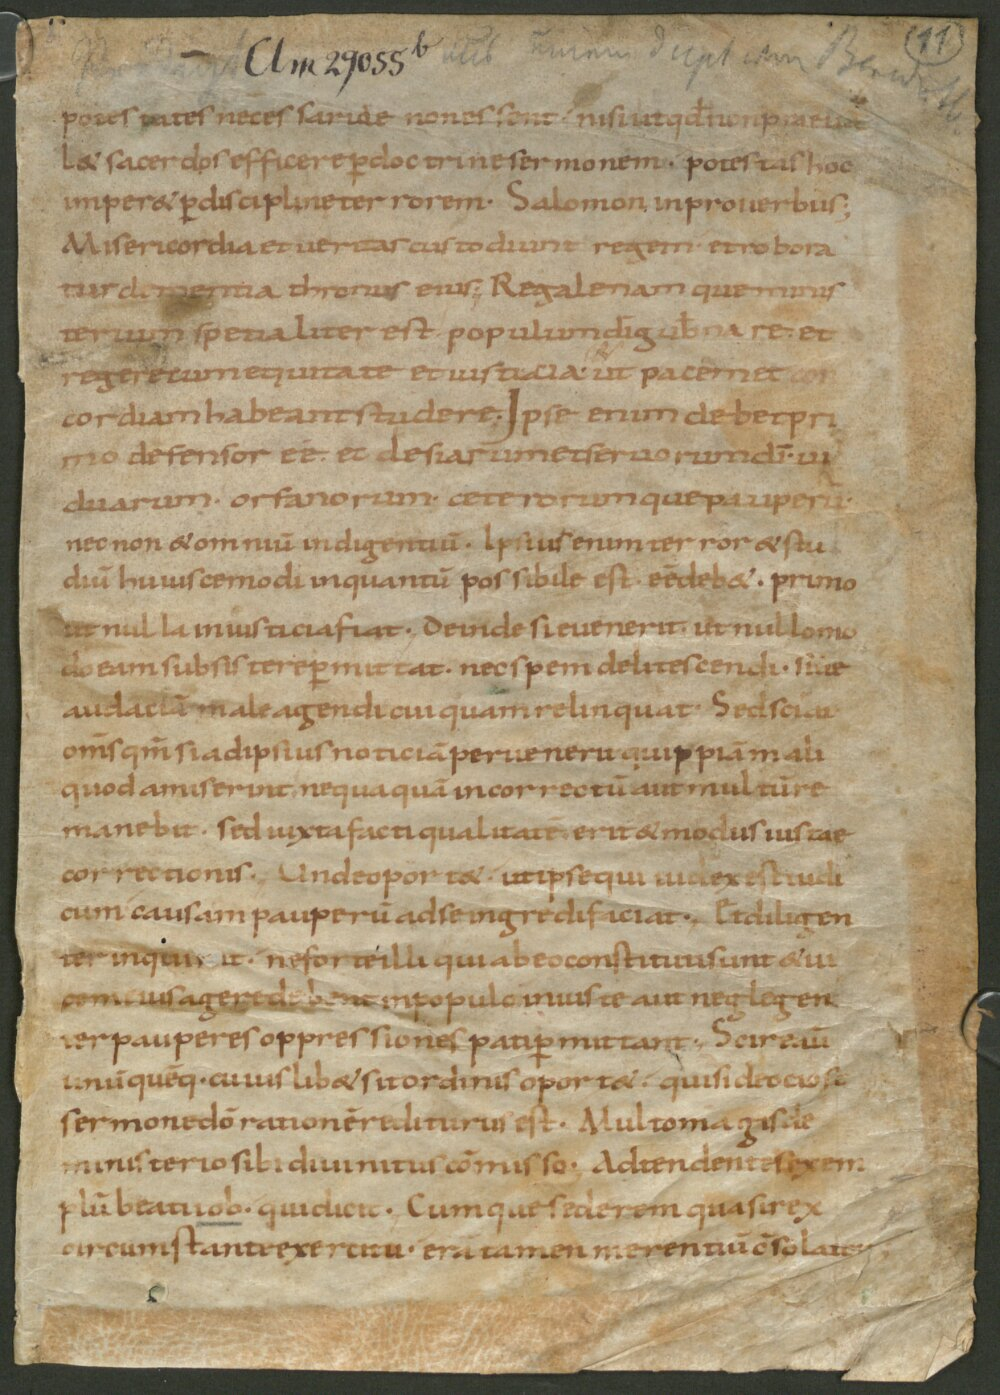 Clm 29055 b
(11)
potestates necessariae non essent nisi ut qđ non praeua
l& sacerdos efficere ꝑ doctrine sermonem · potestas hoc
imper& ꝑ discipline terrorem · Salomon in prouerbiis;
Misericordia et ueritas custodiunt regem · et robora
tur clementia thronus eius; Regale namque minis
terium spetialiter est populum dī gub̄nare · et
regere cum equitate et iusticia · ut pacem et con
cordiam habeant studere · Ipse enim debet pri
mo defensor eē · et clesiarum et seruorum dī · ui
duarum · orfanorum · ceterorumque pauperū ·
necnon & omniū indigentiū · Ipsius enim terror & stu
diū huiuscemodi inquantū possibile est · eē deb& · primo
ut nulla iniusticia fiat · Deinde si euenerit · ut nullo mo
do eam subsistere ꝑmittat · nec spem delitescendi · siue
audaciā male agendi cuiquam relinquat · Sed sciat
om̄s qm̄ si ad ipsius noticiā peruenerit quippiā mali
quod amiserint nequaquā incorrectū aut multū re
manebit · sed iuxta facti qualitatē erit & modus iustae
correctionis · Unde oport& · ut ipse qui iudex est iudi
cum causam pauperū ad se ingredi faciat · Et diligen
ter inquirat · ne forte illi qui ab eo constituti sunt & ui
cem eius agere debent in populo iniuste aut neglegen
ter pauperes oppressiones pati ꝑmittant · Scire aū
unūquēq · cuiuslib& sit ordinis oport& · qui si de ocioso
sermone dō rationē rediturus est · Multo magis de
ministerio sibi diuinitus cōmisso · Adtendentes exem
plū beati iob · qui dicit · Cumque sederem quasi rex
circumstante exercitu · era tamen merentiū cōsolator